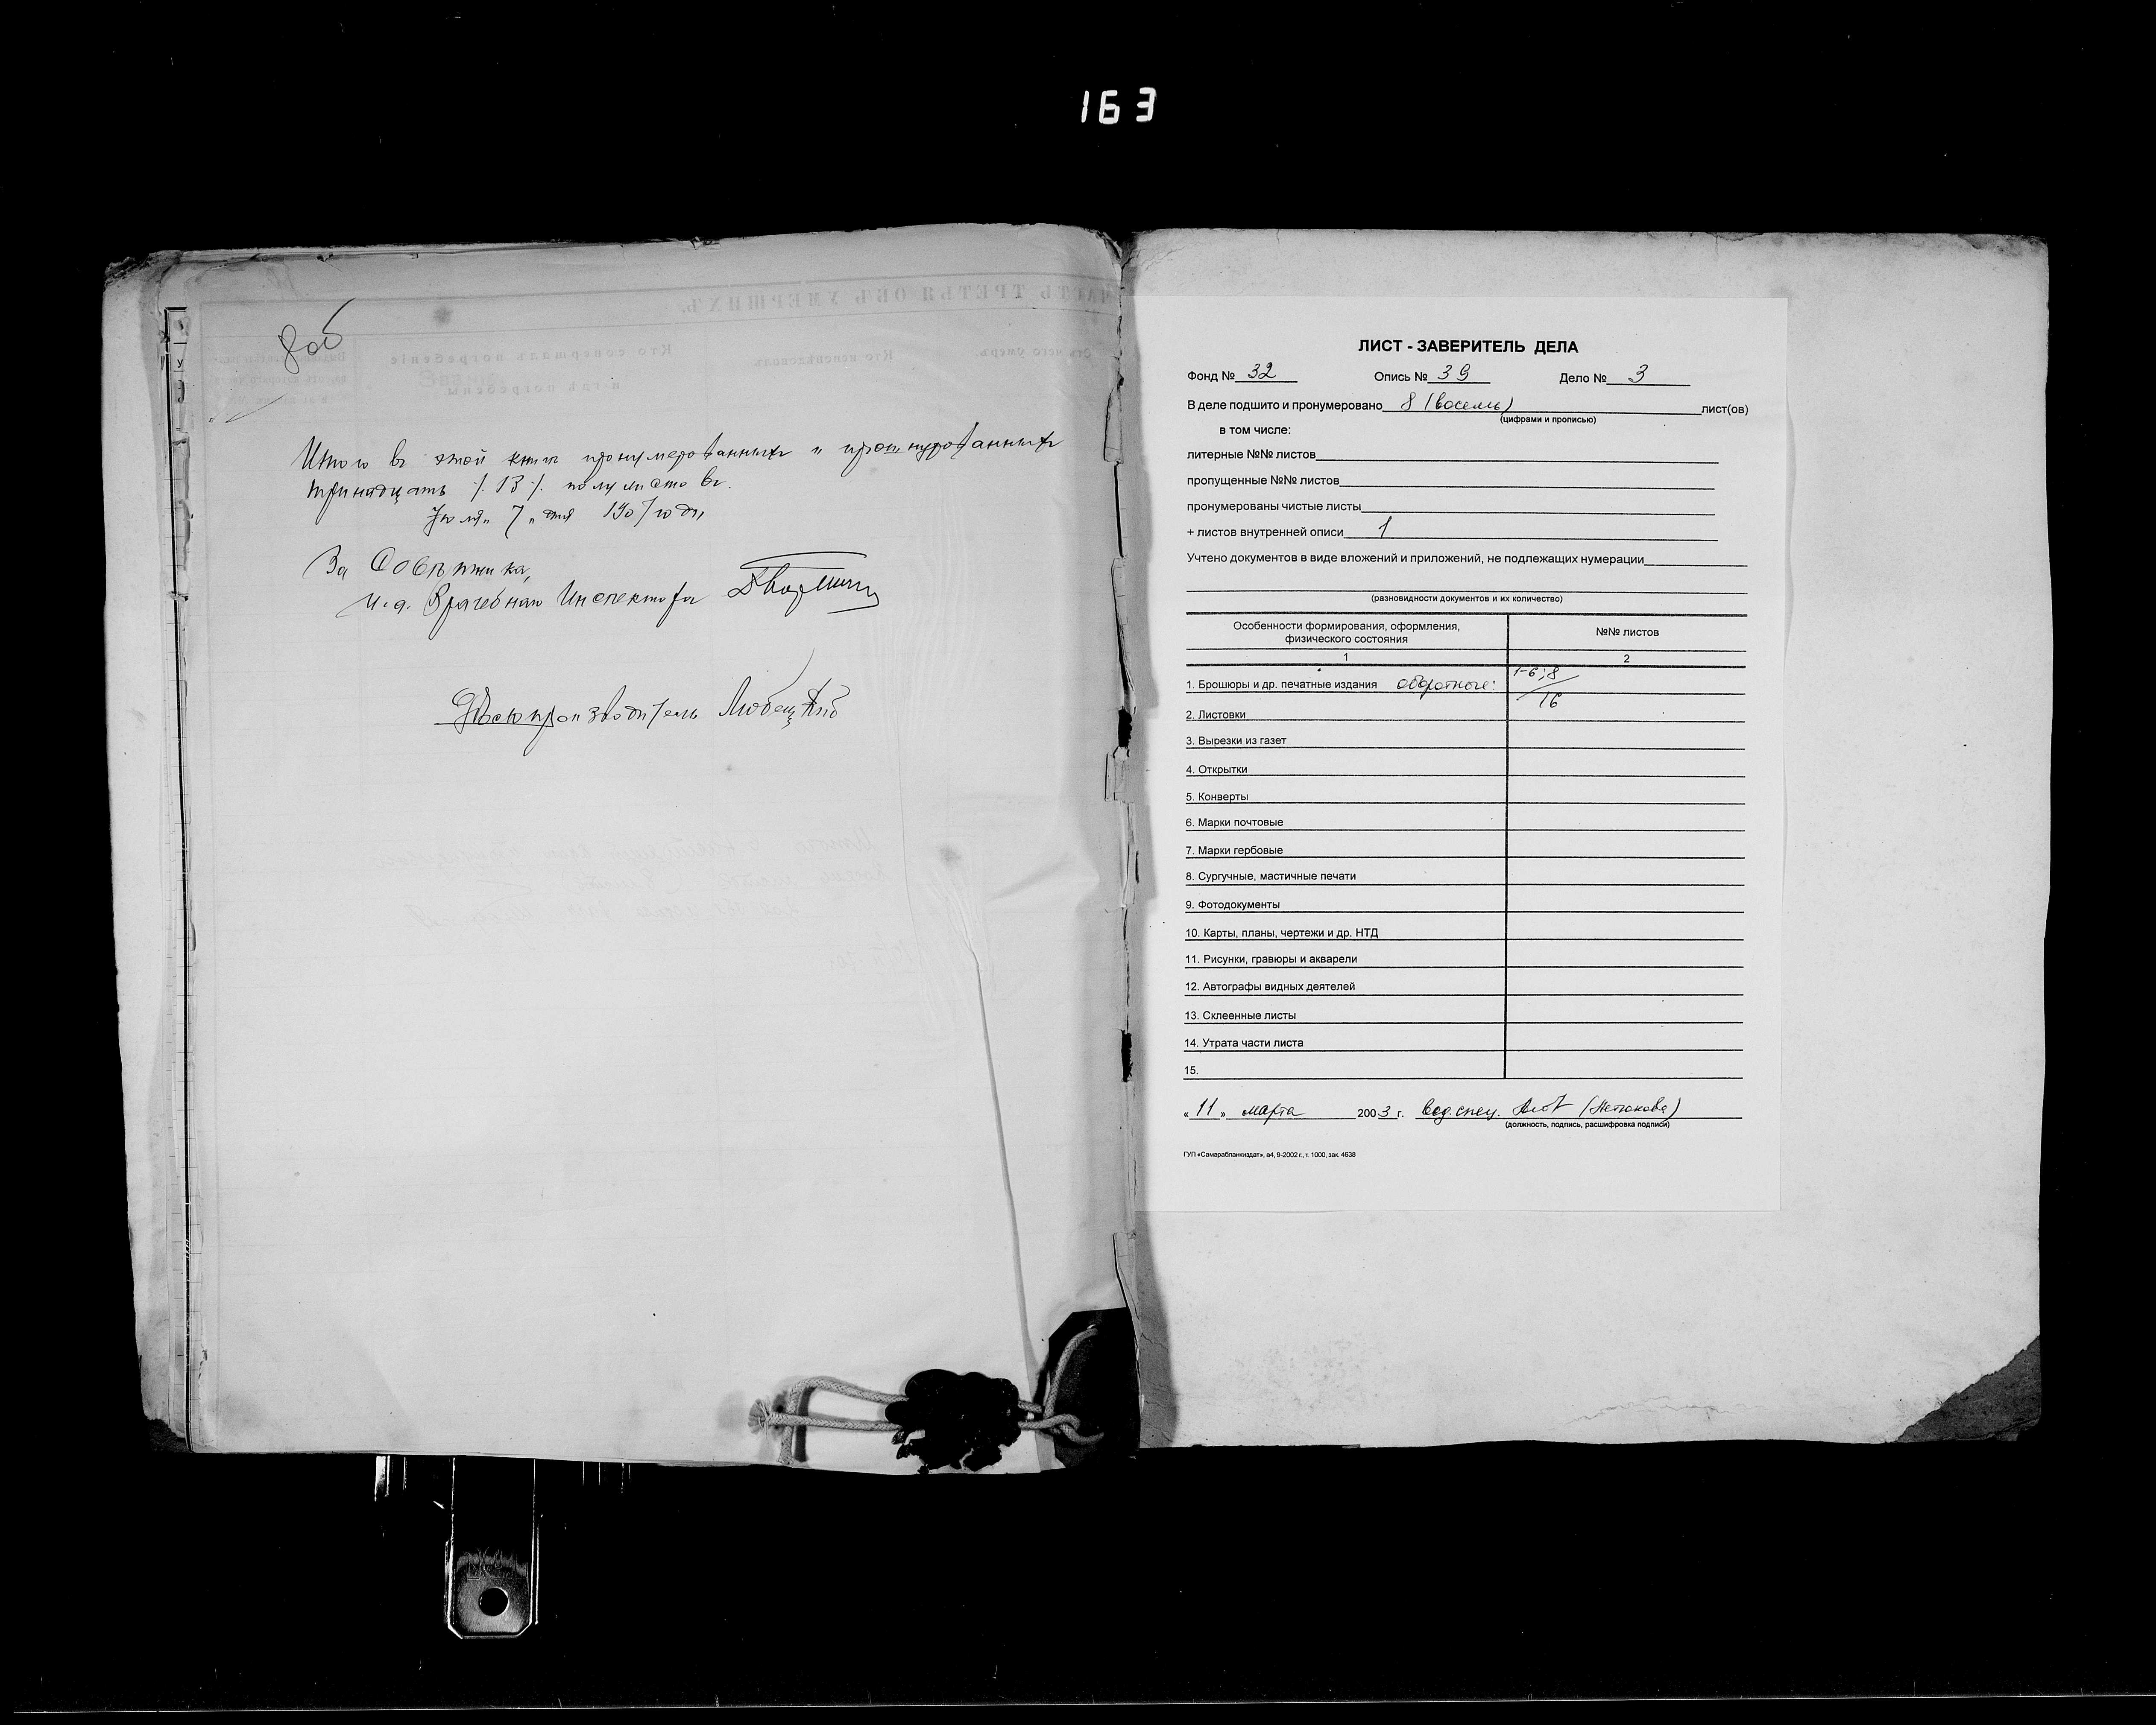 163
8 об
Итого въ этой книгѣ пронумерованныхъ и прошнурованныхъ
тринадцать /. 13 /. полулистовъ.
Іюля 7 дня 1907 года
За Совѣтника,
И. д. Врачебнаго Инспектора
Дѣлопроизводитель
ЧАСТЬ ТРЕТЬЯ ОБЪ УМЕРШИХЪ.
Отъ чего умеръ.
Кто исповѣдовалъ
Кто совершалъ погребеніе
и гдѣ погребены
ЛИСТ - ЗАВЕРИТЕЛЬ ДЕЛА
Фонд № 32 Опись № 39 Дело № 3
В деле подшито и пронумеровано 8 (восемь) лист(ов)
(цифрами и прописью)
в том числе:
литерные №№ листов
пропущенные №№ листов
пронумерованы чистые листы
+ листов внутренней описи 1
Учтено документов в виде вложений и приложений, не подлежащих нумерации
(разновидности документов и их количество)
Особенности формирования, оформления, физического состояния №№ листов
1 2
1. Брошюры и др. печатные издания оборотные: 1-6; 8 / 16
2. Листовки
3. Вырезки из газет
4. Открытки
5. Конверты
6. Марки почтовые
7. Марки гербовые
8. Сургучные, мастичные печати
9. Фотодокументы
10. Карты, планы, чертежи и др. НТД
11. Рисунки, гравюры и акварели
12. Автографы видных деятелей
13. Склеенные листы
14. Утрата части листа
15.
« 11 » марта 2003 г. вед. спец.
(должность, подпись, расшифровка подписи)
ГУП «Самарабланкиздат», а4, 9-2002 г., т. 1000, зак. 4638